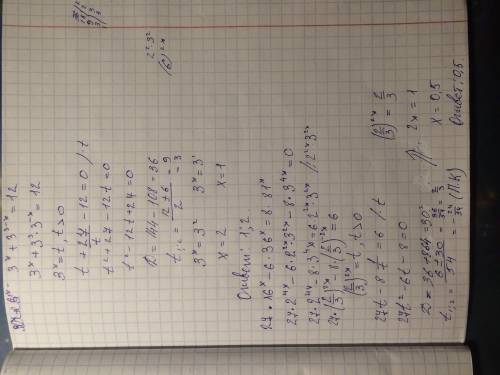 3ˣ + 3³⁻ˣ = 12
3ˣ + 3³·3⁻ˣ = 12
3ˣ = t, t > 0
t + 27/t - 12 = 0 /·t
t² + 27 - 12t = 0
t² - 12t + 27 = 0
D = 144 - 108 = 36
t₁;₂ = (12 ± 6)/2 = 9
3
3ˣ = 3² 3ˣ = 3¹
x = 2 x = 1
Ответ: 1,2
2²·3²
(6)²ˣ
27·16ˣ - 6·36ˣ = 8·81ˣ
27·2⁴ˣ - 6·2²ˣ·3²ˣ - 8·3⁴ˣ = 0
27·2⁴ˣ - 8·3⁴ˣ = 6·2²ˣ·3²ˣ /:2²ˣ3²ˣ
27·(2/3)²ˣ - 8·(3/2)²ˣ = 6
(2/3)²ˣ = t, t > 0
27t - 8/t = 6 /·t
27t² - 6t - 8 = 0
D = 36 + 864 = 30²
t₁;₂ = (6 ± 30)/54 = 36/54 = 2/3
= -24/54 (П.К)
(2/3)²ˣ = 2/3
2x = 1
x = 0,5
Ответ: 0,5